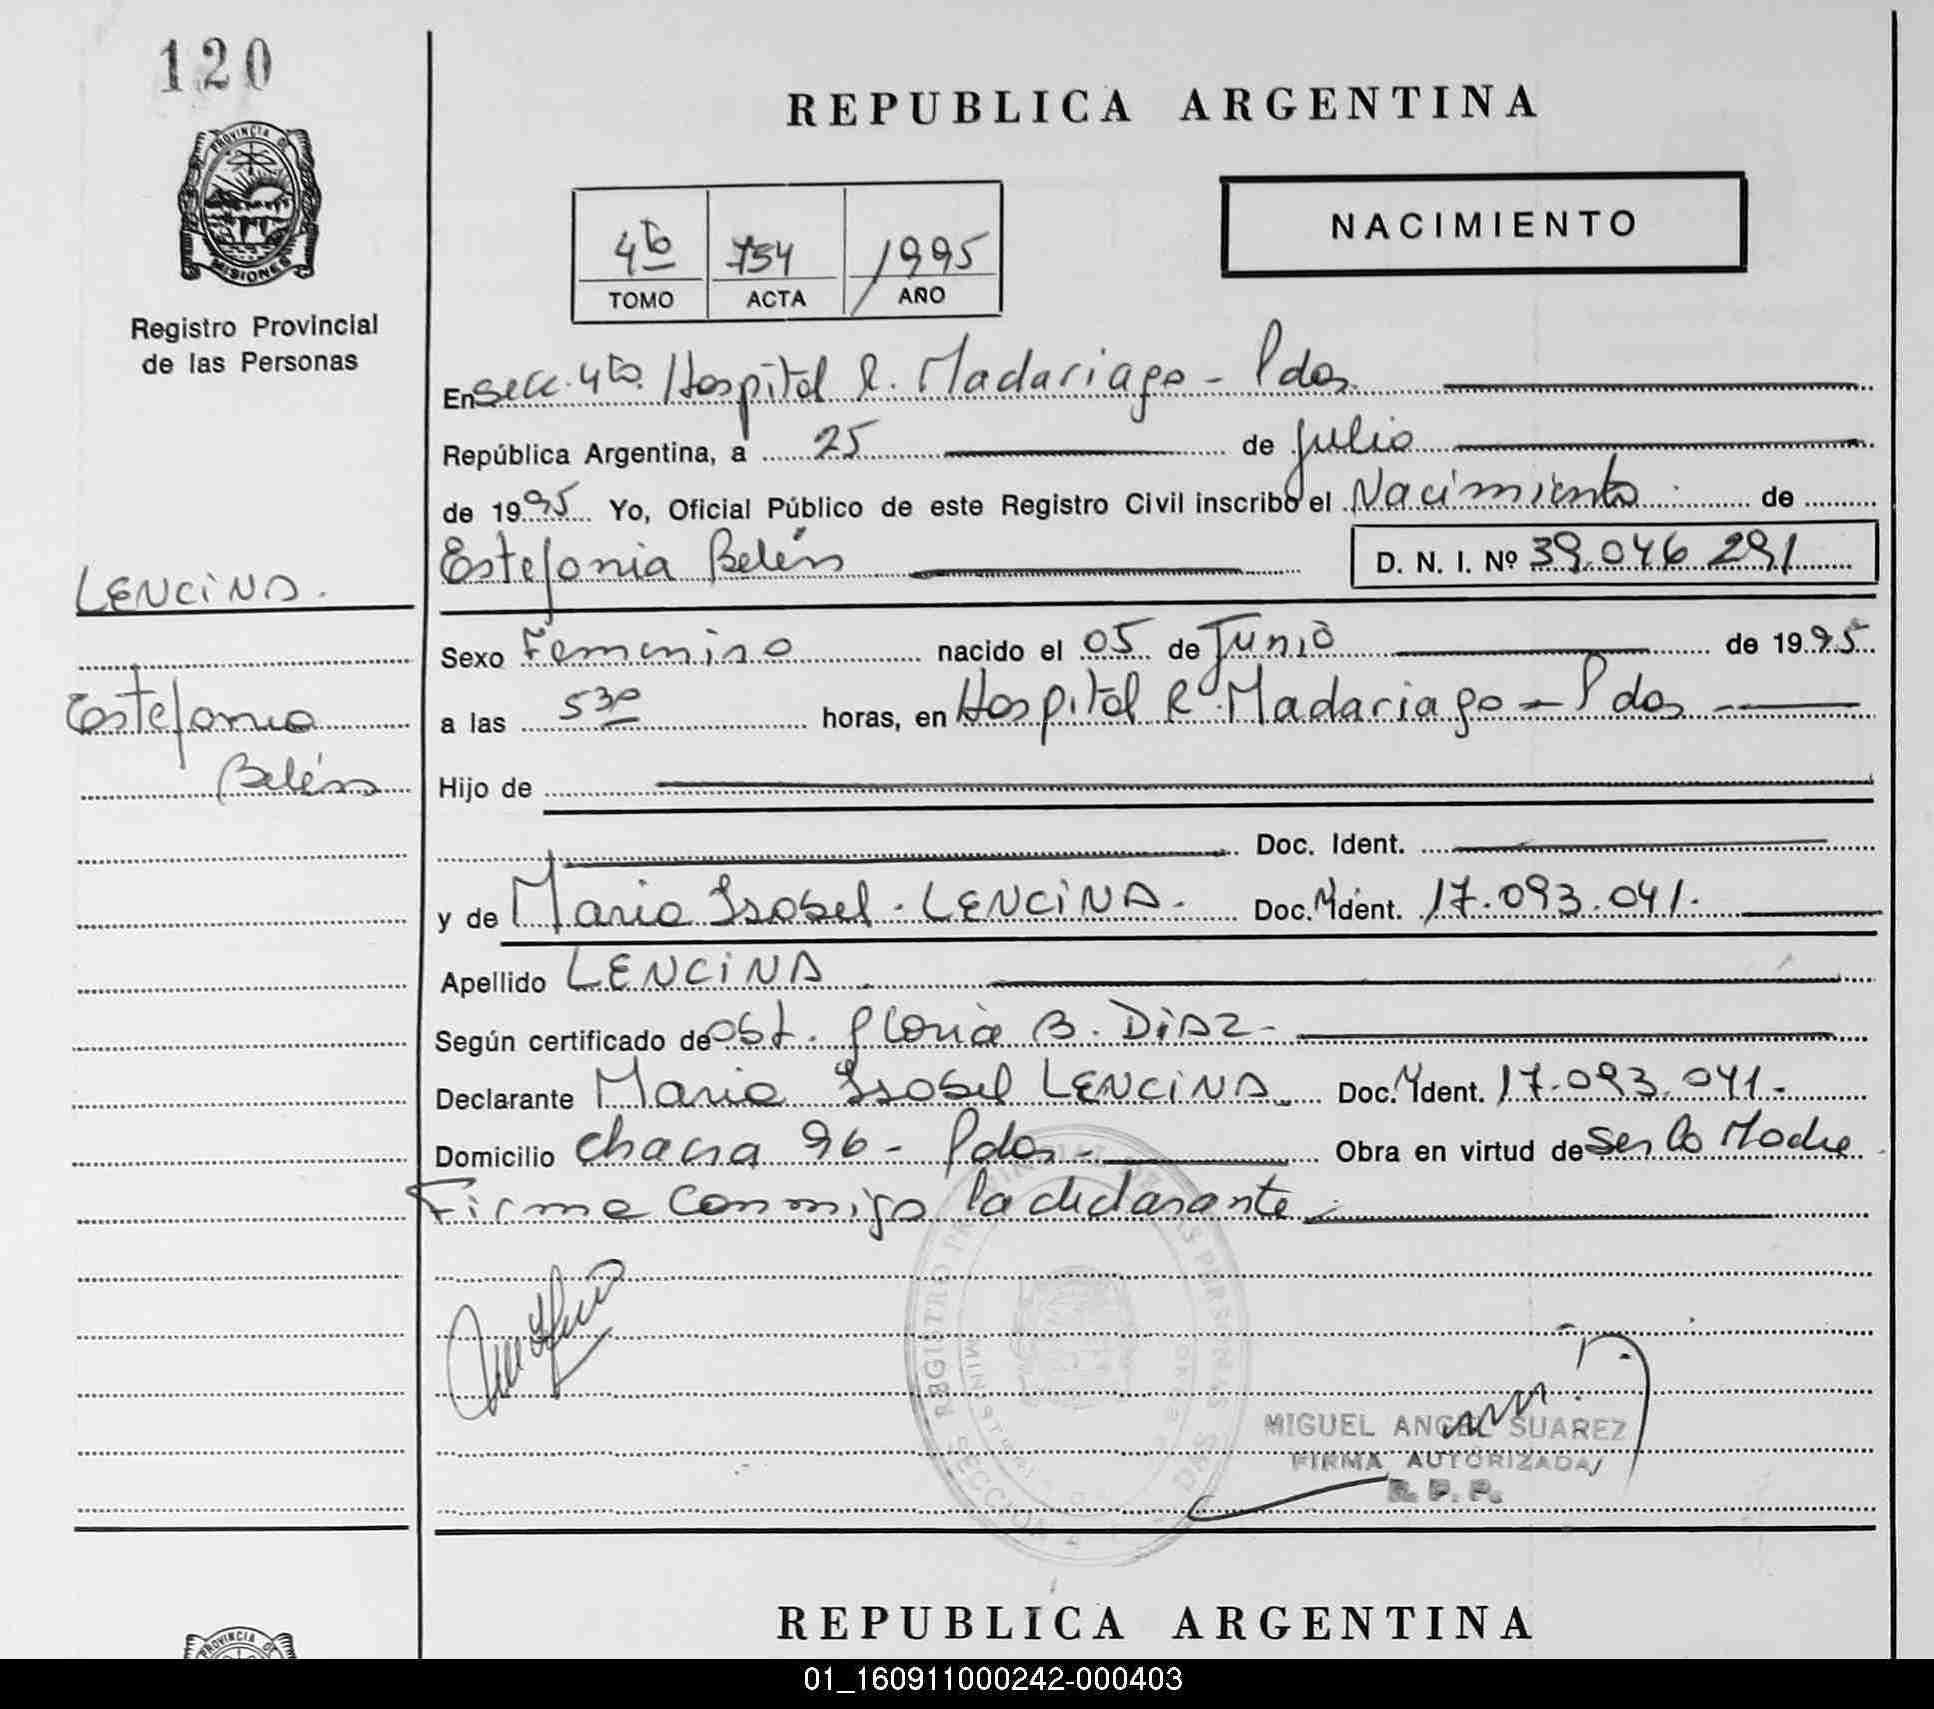 120
PROVINCIA DE
MISIONES
Registro Provincial
de las Personas
REPUBLICA ARGENTINA
NACIMIENTO
4to 754 1995
TOMO ACTA AÑO
En Secc. 4ta. Hospital R. Madariaga - Pdas.
República Argentina, a 25 de Julio
de 1995 Yo, Oficial Público de este Registro Civil inscribo el Nacimiento de
Estefania Belén D. N. I. Nº 39.046 291
LENCINA.
Estefania
Belén
Sexo Femenino nacido el 05 de Junio de 1995
a las 530 horas, en Hospital R. Madariaga - Pdas
Hijo de
Doc. Ident.
y de Maria Isabel. LENCINA. Doc. Ident. 17.093.041.
Apellido LENCINA
Según certificado de Obst. Gloria B. DIAZ -
Declarante Maria Isabel LENCINA. Doc. Ident. 17.093.041.-
Domicilio Chacra 96 - Pdas - Obra en virtud de Ser la Madre.
Firma conmigo la declarante.
REGISTRO PROVINCIAL DE LAS PERSONAS
SECCION 4
MIGUEL ANGEL SUAREZ
FIRMA AUTORIZADA
R. P. P.
REPUBLICA ARGENTINA
PROVINCIA DE
01_160911000242-000403